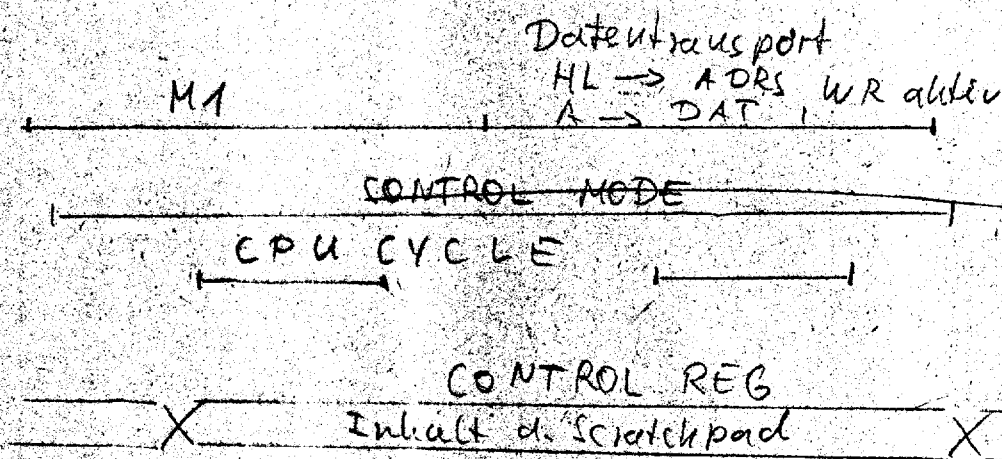 Datentransport
M1 HL → ADRS, WR aktiv
A → DAT
CONTROL MODE
CPU CYCLE
CONTROL REG
Inhalt d. Scratchpad